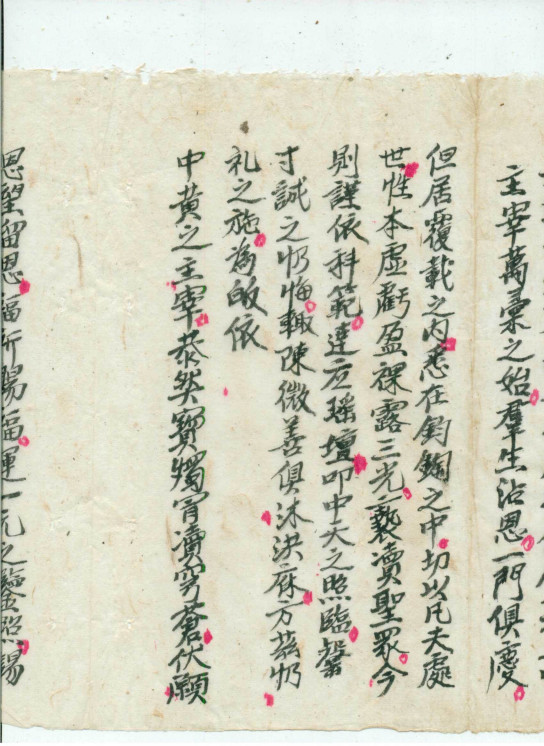 主宰萬彙之始羣生沾恩一門俱慶
但居覆載之内悉在鈞陶之中切以凡夫處
世性本虛虧盈裸露三光褻瀆聖眾今
則謹依科範建立瑤壇叩中天之照臨罄
寸誠之忉悔輒陳微善俱沐洪庥方茲忉
礼之施為皈依
中黃之主宰恭焚寶燭霄瀆穹蒼伏願
恩望留恩福祈賜福運一元之鑒照賜